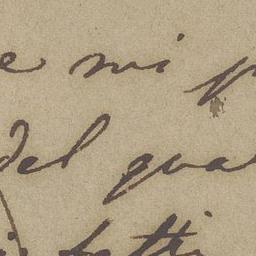 e mi p
del qua
fatti